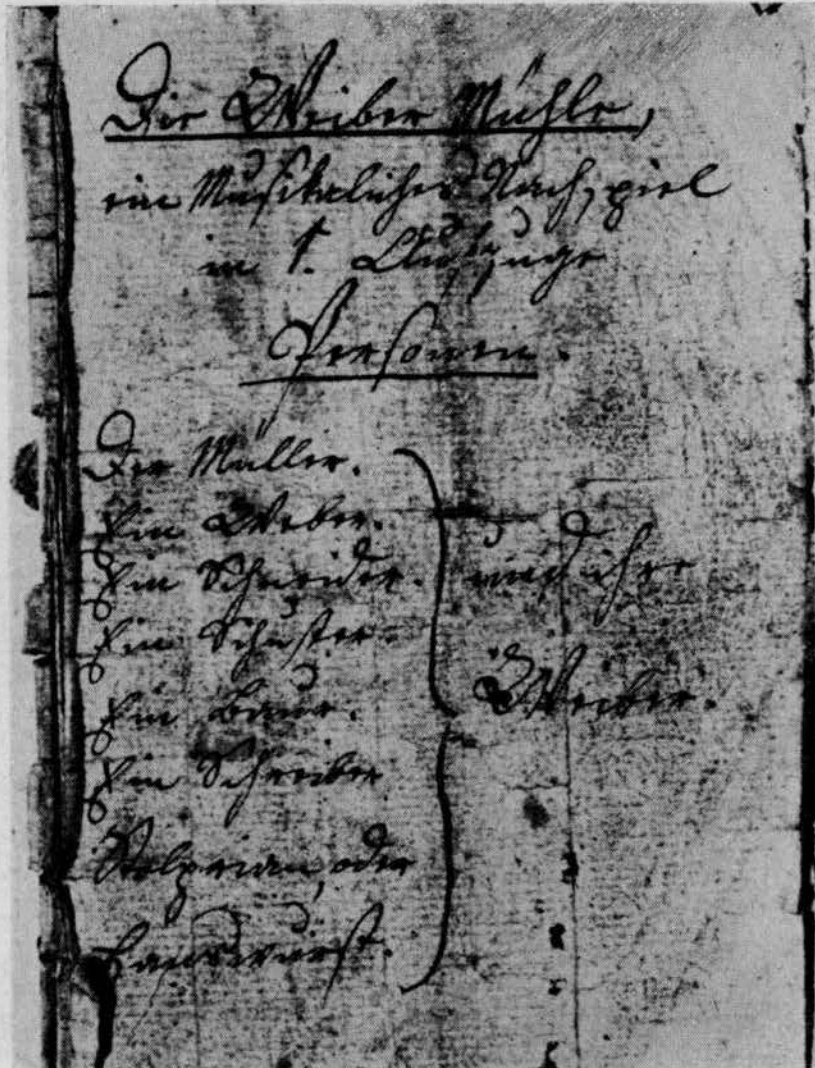 Die Weiber Mühle,
ein Musikalisches Nachspiel
in 1. Aufzuge
Personen.
Der Müller.
Ein Weber.
Ein Schneider.
Ein Schuster.
Ein Baur.
Ein Schreiber
Stolprian, oder
Hanswurst.
und ihre
Weiber.